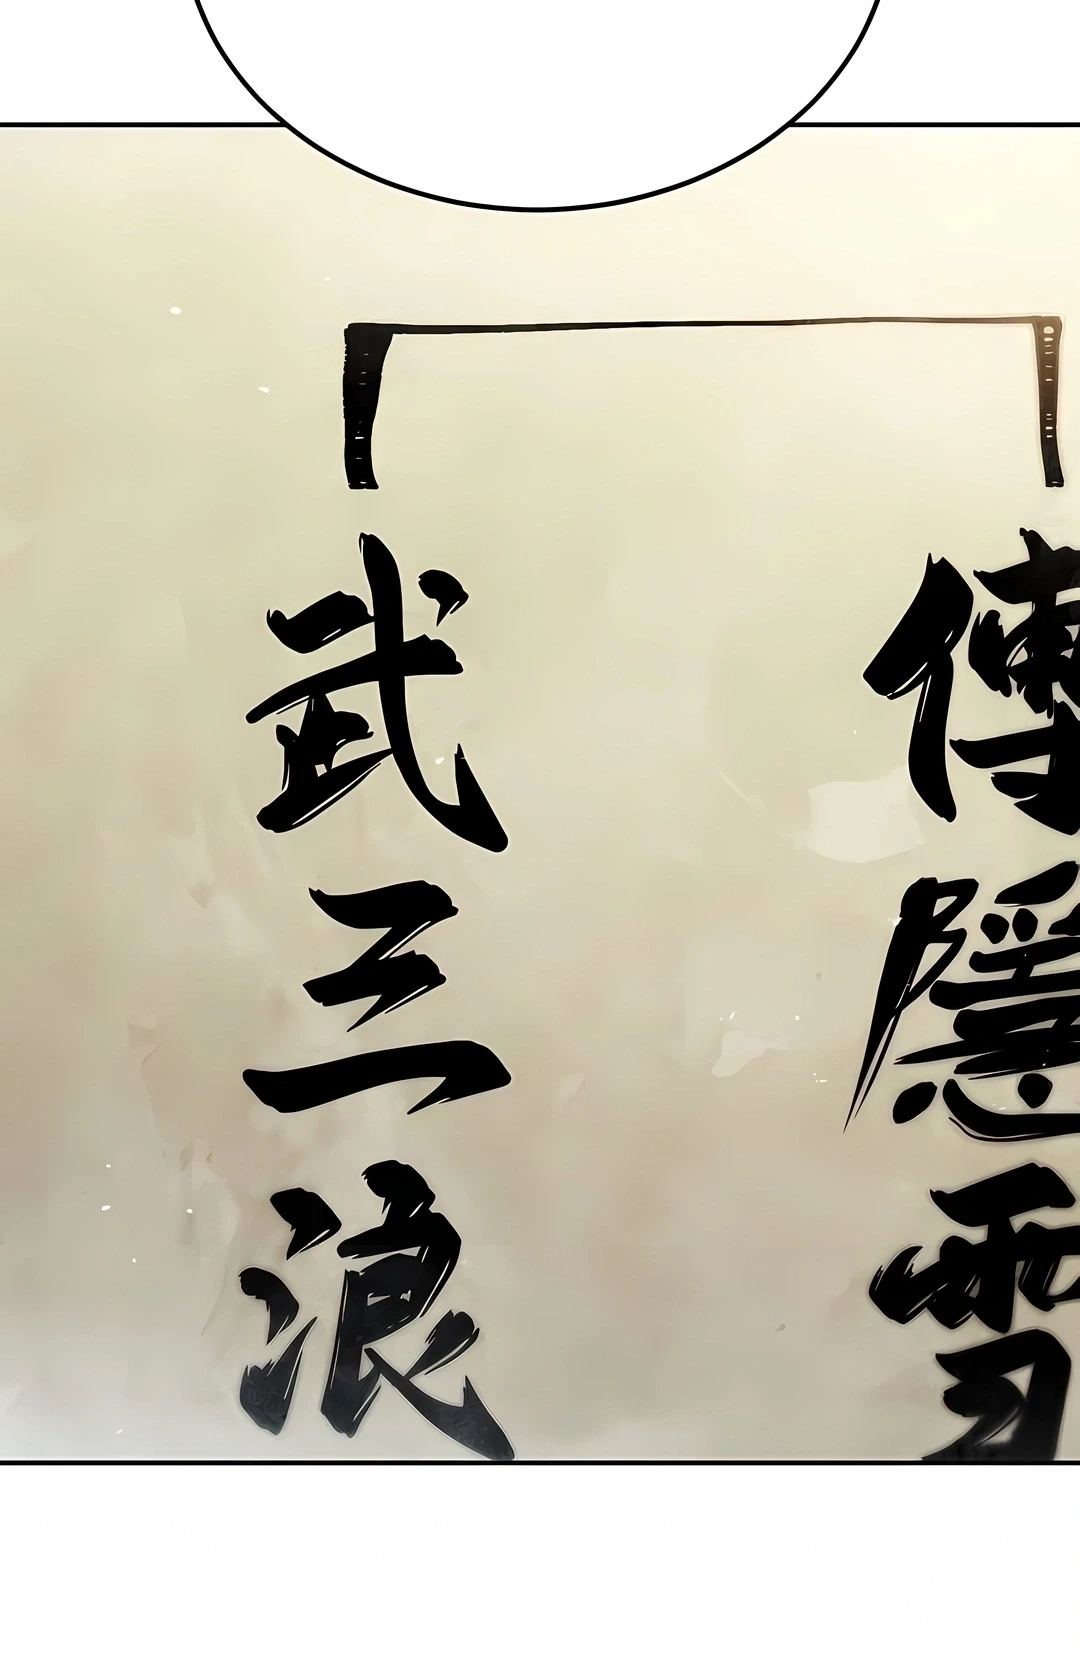 傳隱雪
武三浪